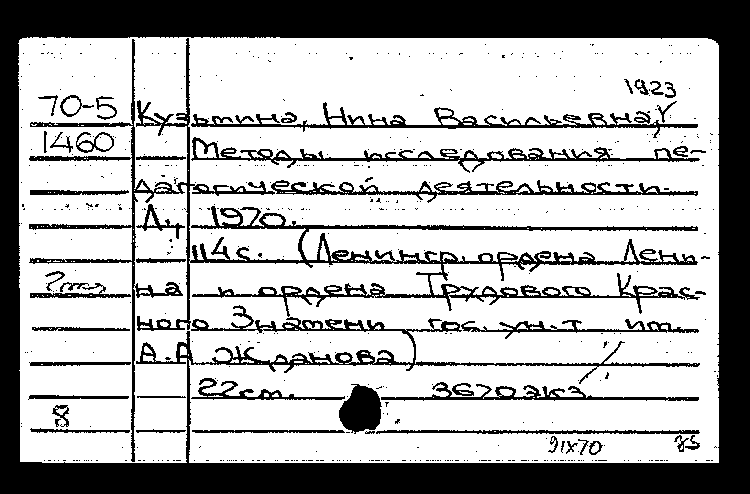 1923
70-5 Кузьмина, Нина Васильевна,
1460 Методы исследования пе-
дагогической деятельности.
Л., 1970.
114с. (Ленингр. ордена Лени-
на и ордена Трудового Крас-
ного Знамени гос. ун-т им.
А.А Жданова)
22см. 3670экз.
8
9IX70